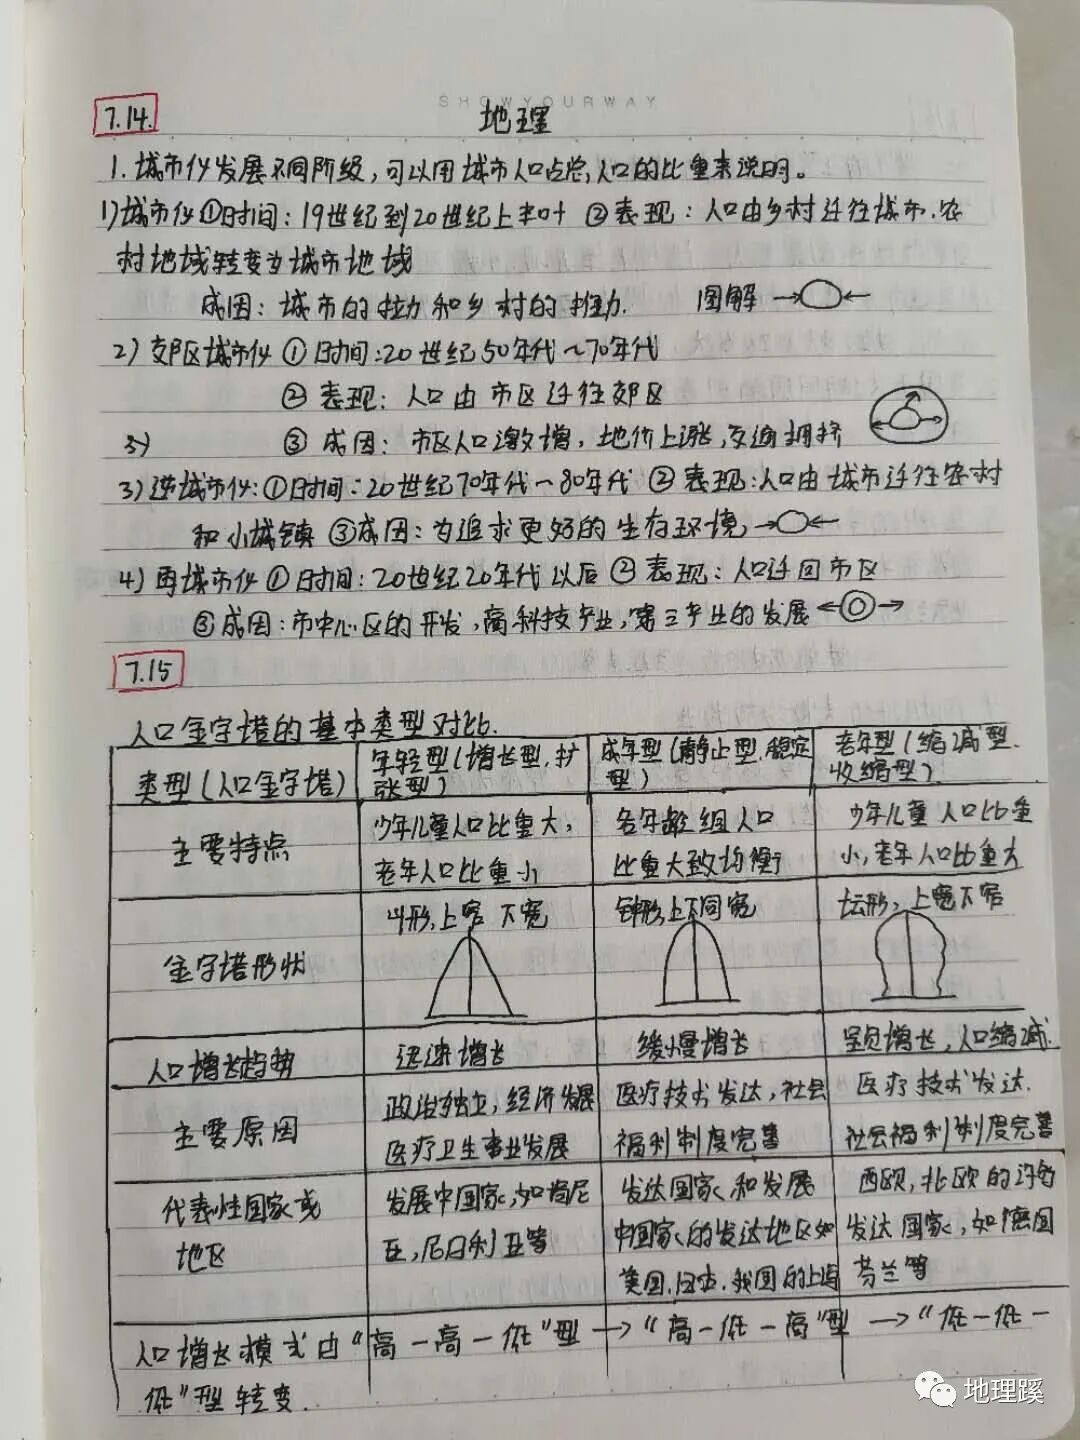 SHOWYOURWAY
7.14. 地理
1. 城市化发展不同阶级,可以用城市人口占总人口的比重来说明。
1)城市化①时间:19世纪到20世纪上半叶 ②表现:人口由乡村迁往城市.农
村地域转变为城市地域
成因:城市的拉力和乡村的推力. 图解
2)郊区城市化 ①时间:20世纪50年代~70年代
②表现:人口由市区迁往郊区
3) ③成因:市区人口激增,地价上涨,交通拥挤
3)逆城市化:①时间:20世纪70年代~80年代 ②表现:人口由城市迁往农村
和小城镇 ③成因:为追求更好的生存环境
4)再城市化①时间:20世纪20年代以后②表现:人口迁回市区
③成因:市中心区的开发,高科技产业,第三产业的发展
7.15
人口金字塔的基本类型对比.
类型(人口金字塔) 年轻型(增长型,扩张型) 成年型(静止型.稳定型) 老年型(缩减型.收缩型).
主要特点 少年儿童人口比重大,老年人口比重小 各年龄组人口比重大致均衡 少年儿童人口比重小,老年人口比重大
金字塔形状 上窄下宽 钟形,上下同宽 坛形,上宽下窄
人口增长趋势 迅速增长 缓慢增长 呈负增长,人口缩减.
主要原因 政治独立,经济发展医疗卫生事业发展 医疗技术发达,社会福利制度完善 医疗技术发达.社会福利制度完善
代表性国家或地区 发展中国家,如肯尼亚,尼日利亚等 发达国家和发展中国家的发达地区如美国.日本.我国的上海 西欧,北欧的许多发达国家,如德国芬兰等
人口增长模式由“高一高一低”型→“高一低一高”型→“低一低一
低”型转变.
地理蹊